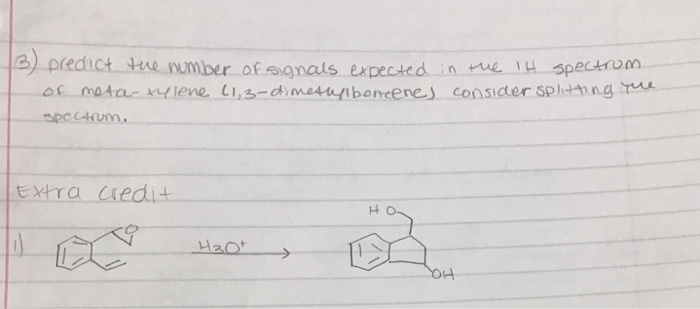 3) predict the number of signals expected in the 1H spectrum
of meta-xylene (1,3-dimethylbencene) consider splitting the
spectrum.
Extra credit
1)
O
H3O+
HO
OH